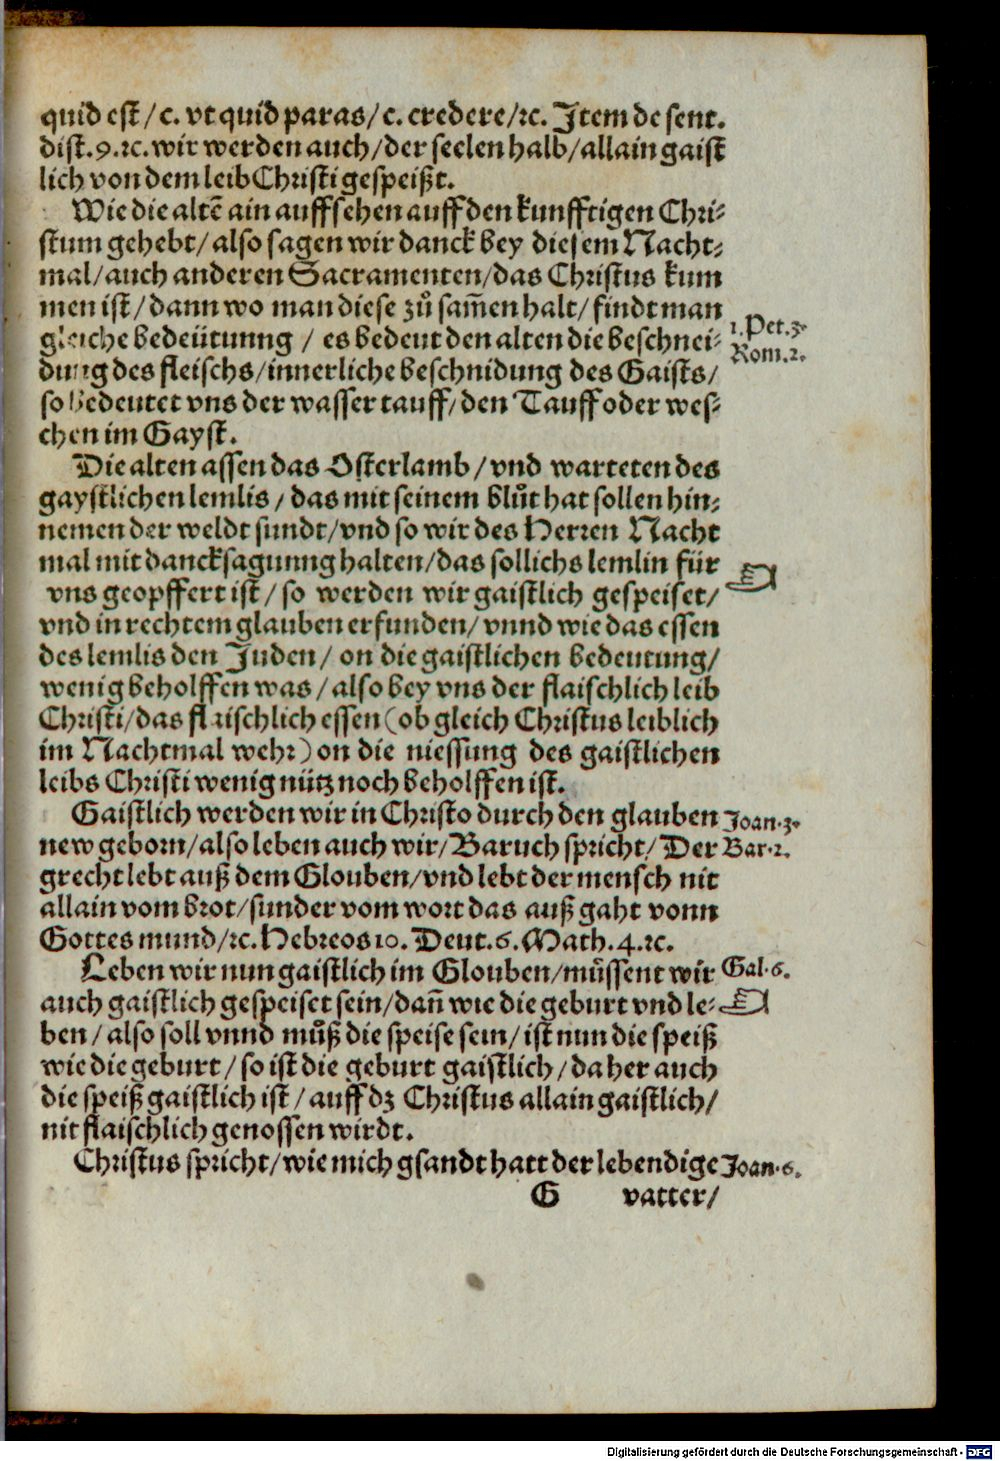 quid est / c. vt quid paras / c. credere / ꝛc. Item de sent.
dist. 9. ꝛc. wir werden auch / der seelen halb / allain gaist
lich von dem leib Christi gespeißt.
Wie die altē ain auffsehen auff den kunfftigen Chri⸗
stum gehebt / also sagen wir danck bey diesem Nacht⸗
mal / auch anderen Sacramenten / das Christus kum
men ist / dann wo man diese zů sam̄en halt / findt man
gleiche bedeütunng / es bedeut den alten die beschnei⸗
1. Pet. 3.
Rom. 2.
dung des fleischs / innerliche beschnidung des Gaists /
so bedeutet vns der wasser tauff / den Tauff oder wes⸗
chen im Gayst.
Die alten assen das Osterlamb / vnd warteten des
gaystlichen lemlis / das mit seinem blůt hat sollen hin⸗
nemen der weldt sundt / vnd so wir des Herren Nacht
mal mit dancksagunng halten / das sollichs lemlin für
vns geopffert ist / so werden wir gaistlich gespeiset /
vnd in rechtem glauben erfunden / vnnd wie das essen
des lemlis den Juden / on die gaistlichen bedeutung /
wenig beholffen was / also bey vns der flaischlich leib
Christi / das flaischlich essen (ob gleich Christus leiblich
im Nachtmal wehr) on die niessung des gaistlichen
leibs Christi wenig nütz noch beholffen ist.
Gaistlich werden wir in Christo durch den glauben
Joan. 3.
new geborn / also leben auch wir / Baruch spricht / Der
Bar. 2.
grecht lebt auß dem Glouben / vnd lebt der mensch nit
allain vom brot / sunder vom wort das auß gaht vonn
Gottes mund / ꝛc. Hebreos 10. Deut. 6. Math. 4. ꝛc.
Leben wir nun gaistlich im Glouben / můssent wir
Gal. 6.
auch gaistlich gespeiset sein / dañ wie die geburt vnd le⸗
ben / also soll vnnd můß die speise sein / ist nun die speiß
wie die geburt / so ist die geburt gaistlich / daher auch
die speiß gaistlich ist / auff dz Christus allain gaistlich /
nit flaischlich genossen wirdt.
Christus spricht / wie mich gsandt hatt der lebendige
Joan. 6.
G vatter /
Digitalisierung gefördert durch die Deutsche Forschungsgemeinschaft - DFG